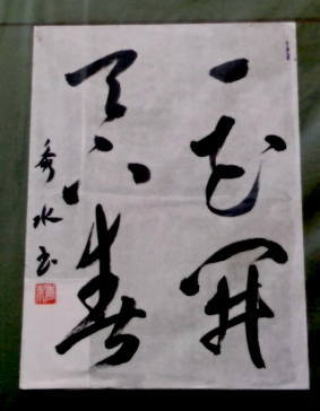 一花開
天下春
秀水书